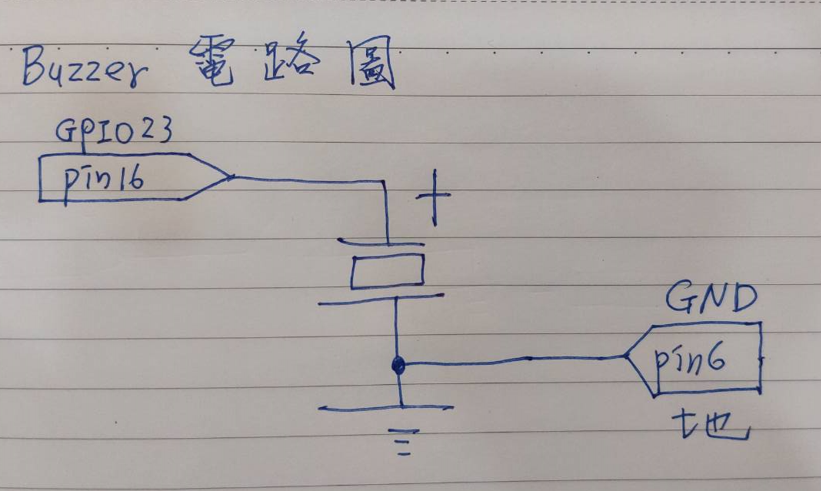 Buzzer 電路圖
GPIO23
pin16
+
GND
pin6
地